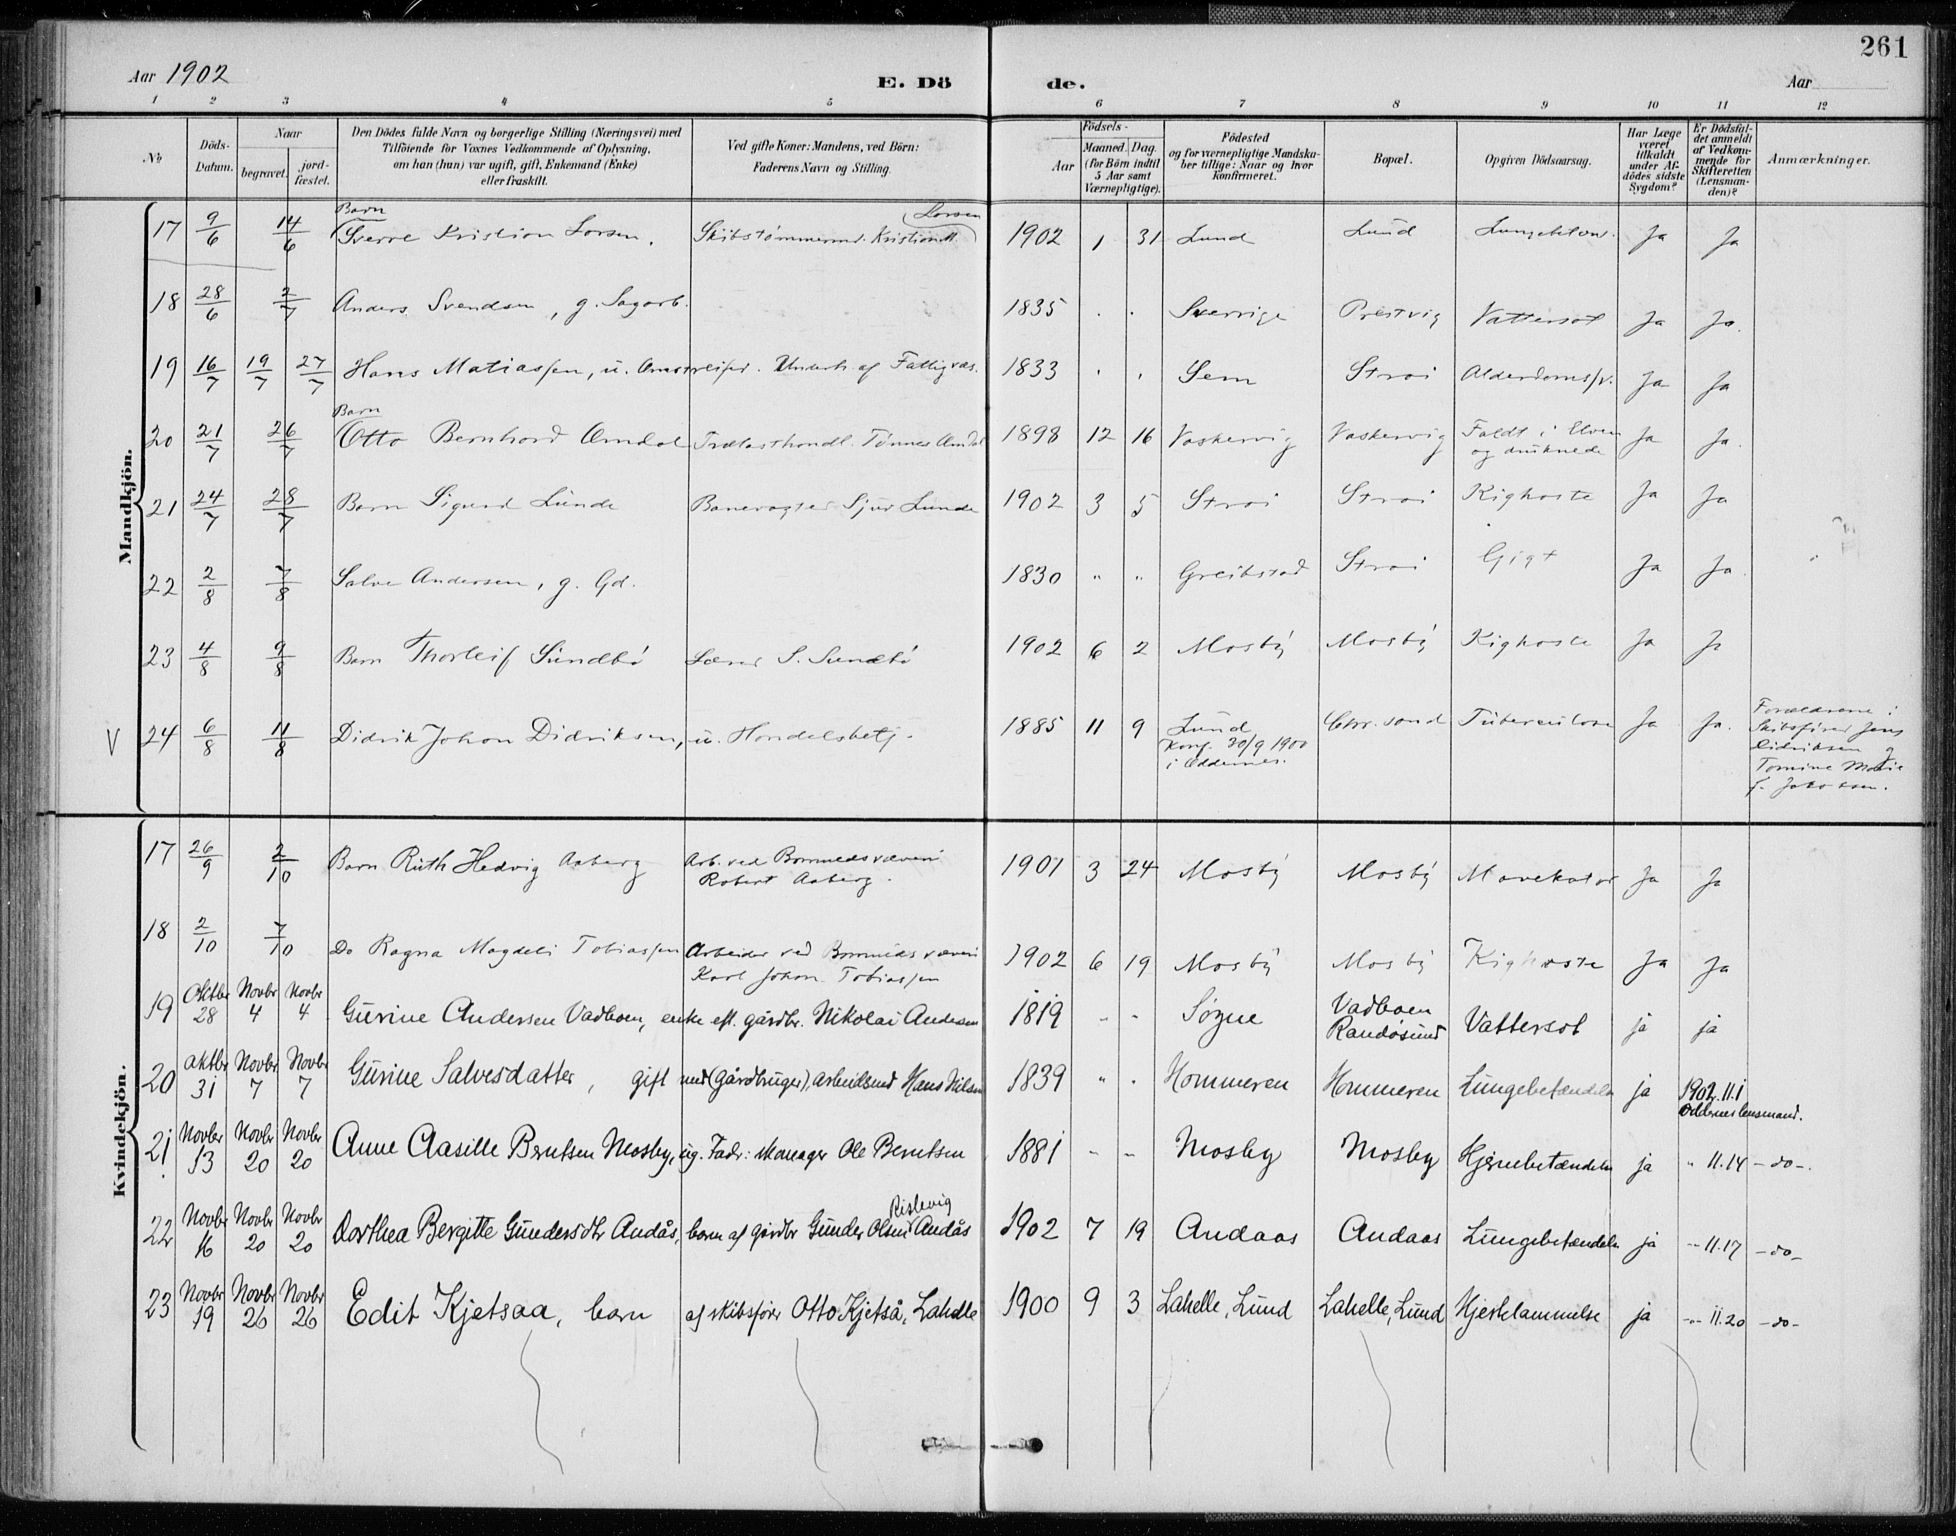 261
Aar 1902 E. Dö de. Aar
1 2 3 4 5 6 7 8 9 10 11 12
No
Döds-Datum.
Naar
begravet.
jord-fæstet.
Den Dödes fulde Navn og borgerlige Stilling (Næringsvei) med
Tilföiende for Voxnes Vedkommende af Oplysning,
om han (hun) var ugift, gift, Enkemand (Enke)
eller fraskilt.
Ved gifte Koner: Mandens, ved Börn:
Faderens Navn og Stilling.
Födsels-
Aar
Maaned. Dag.
(for Börn indtil
5 Aar samt
Værnepligtige).
Födested
og for værnepligtige Mandska-
ber tillige: Naar og hvor
Konfirmeret.
Bopæl.
Opgiven Dödsaarsag.
Har Læge
været
tilkaldt
under Af-
dödes sidste
Sygdom?
Er Dödsfal-
det anmeldt
af Vedkom-
mende for
Skifteretten
(Lensman-
den)?
Anmærkninger.
Mandkjön.
17 9/6 14/6 Barn Sverre Kristian Larsen. Skibstømmermd. Kristian Larsen 1902 1 31 Lund Lund Ja Ja
18 28/6 2/7 Anders Svendsen, g. Sagarb. 1835 . . Sverrige Prestvig Vattersot Ja Ja.
19 16/7 19/7 27/7 Hans Matiassen, u. Omstreifer. Underh. af Fattigvæs. 1833 . . Sem Strai Alderdomssv. Ja Ja
20 21/7 26/7 Barn Otto Bernhard Omdal Trælasthandl. Tønnes Omdal 1898 12 16 Vaskervig Vaskervig Faldt i Elven
og druknede Ja Ja.
21 24/7 28/7 Barn Sigurd Lunde Banevogter Sjur Lunde 1902 3 5 Strai Strai Kighoste Ja Ja
22 2/8 7/8 Salve Andersen, g. Gd. 1830 " " Greibstad Strai Gigt Ja Ja
23 4/8 9/8 Barn Thorleif Sundbø Lærer S. Sundbø 1902 6 2 Mosby Mosby Kighoste Ja Ja
V 24 6/8 11/8 Didrik Johan Didriksen, u. Handelsbetj. 1885 11 9 Lund
Konf. 30/9 1900
i Oddernes. Chr.sand Tuberculose Ja Ja. Forældrene:
Skibsfører Jens
Didriksen og
Tomine Marie
f. Jakobsen.
Kvindekjön.
17 26/9 2/10 Barn Ruth Hedvig Aaberg Arb. ved Bomuldsvæveri
Robert Aaberg. 1901 3 24 Mosby Mosby Mavekatar Ja Ja
18 2/10 7/10 Do Ragna Magdeli Tobiassen Arbeider ved Bomuldsvæveri
Karl Johan Tobiassen 1902 6 19 Mosby Mosby Kighoste Ja Ja
19 Oktbr 28 Novbr 4 Novbr 4 Gurine Andersen Vadboen, enke eft. gårdbr. Nikolai Andersen 1819 - - Søgne Vadboen
Randøsund Vattersot ja ja
20 Oktbr 31 Novbr 7 Novbr 7 Gurine Salvesdatter, gift med (gårdbruger), arbeidsmd Hans Nilsen 1839 " . Hommeren Hommeren Lungebetændelse ja 1902.11.1
Oddernes lensmand.
21 Novbr 13 Novbr 20 Novbr 20 Anne Aasille Berntsen Mosby, ug. Fadr: Manager Ole Berntsen 1881 - - Mosby Mosby Hjernebetændelse ja " 11.14 -do-.
22 Novbr 16 Novbr 20 Novbr 20 Dorthea Bergitte Gundersdtr Andås, barn af gårdbr Gunder Olsen Rislevig Andås 1902 7 19 Andaas Andaas Lungebetændelse ja -"- 11.17 -do-
23 Novbr 19 Novbr 26 Novbr 26 Edit Kjetsaa, barn af skibsfører Otto Kjetså, Lahelle 1900 9 3 Lahelle, Lund Lahelle, Lund Hjertelammelse ja -"- 11.20 -do-